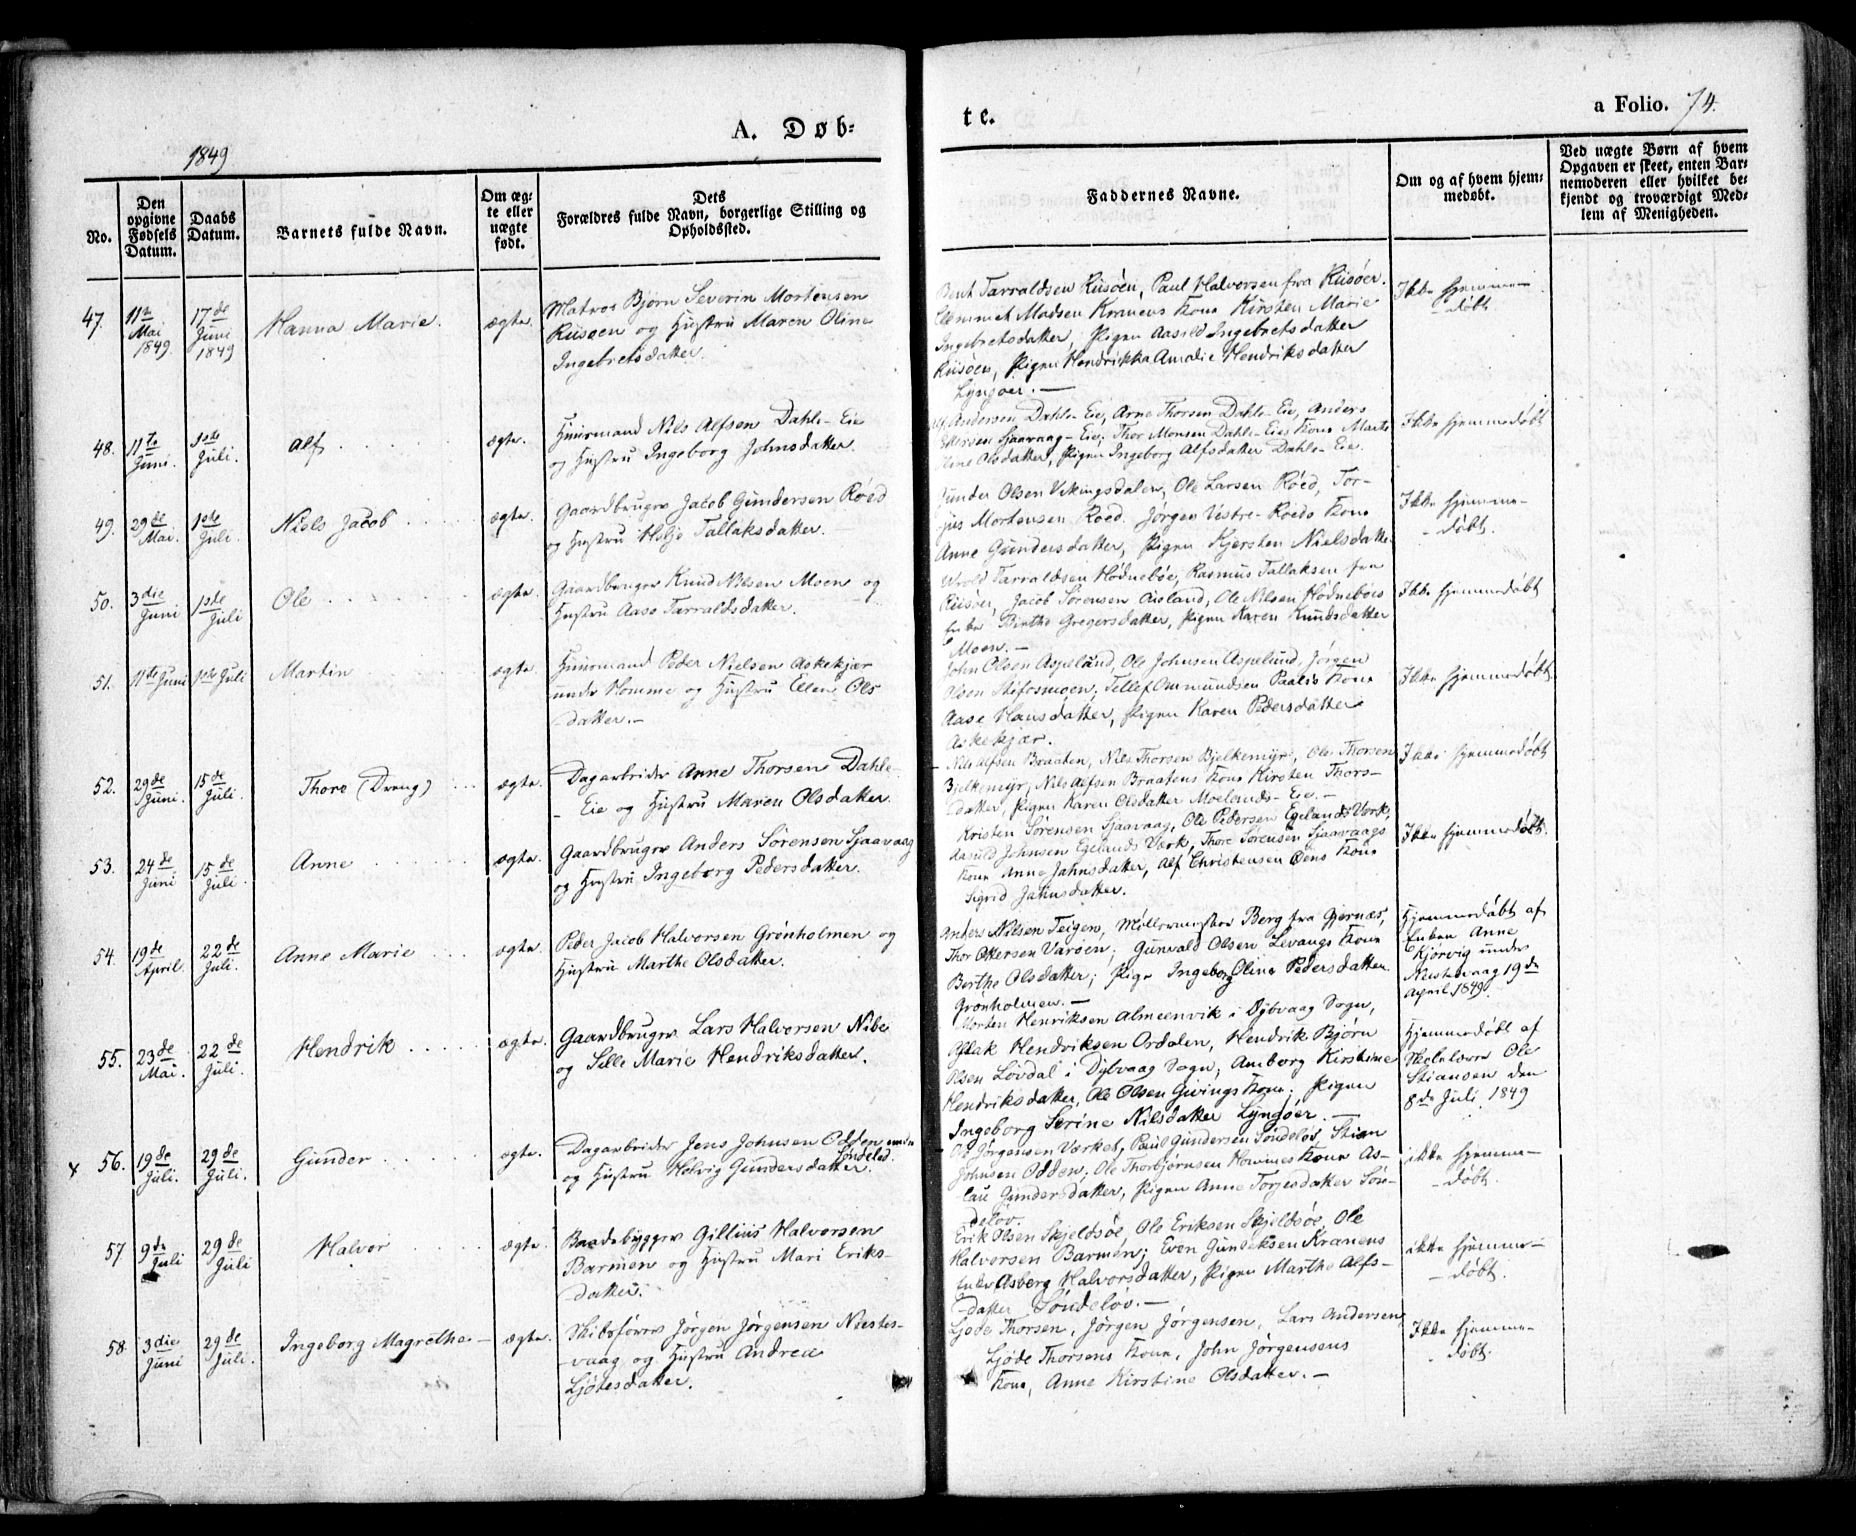 A. Døb-
te.
a Folio. 74.
1849
No.
Den opgivne Fødsels Datum.
Daabs Datum.
Barnets fulde Navn.
Om ægte eller uægte født.
Dets Forældres fulde Navn, borgerlige Stilling og Opholdssted.
Faddernes Navne.
Om og af hvem hjemmedøbt.
Ved uægte Børn af hvem Opgaven er skeet, enten Barnemoderen eller hvilket bekjendt og troværdigt Medlem af Menigheden.
47. 11te Mai 1849. 17de Juni 1849 Hanna Marie. ægte.
Matros Bjørn Severin Mortensen
Riisøen og Hustru Maren Oline
Ingebretsdatter.
Bent Tarraldsen Riisøen, Paul Halvorsen fra Riisøer.
Clemmet Madsen Kranens Kone Kirsten Marie
Ingebretsdatter, Pigen Aasild Ingebretsdatter
Riisøen, Pigen Hendrikka Amalie Hendriksdatter
Lyngøer. —
Ikke hjemme-
døbt
48. 11te Juni. 1ste Juli. Alf ægte.
Huusmand Nils Alfsen Dahls-Eie
og Hustru Ingeborg Johnsdatter.
Andersen Dahls-Eie, Arne Thorsen Dahls-Eie, Anders
Sjaavaag-Eie; Thor Monsen Dahls-Eies Kone Marte
Oline Olsdatter, Pigen Ingeborg Alfsdatter Dahls-Eie.
Ikke hjemmedøbt
49. 29de Mai. 1ste Juli. Niels Jacob ægte.
Gaardbruger Jacob Gundersen Røed
og Hustru Helje Tallaksdatter.
Gunder Olsen Vikingsdalen, Ole Larsen Røed, Tor-
jus Mortensen Roed. Jørgen Vestre-Roeds Kone
Anne Gundersdatter, Pigen Kjersten Nielsdatter
Ikke hjemme-
døbt.
50. 3die Juni 1ste Juli Ole ægte.
Gaardbruger Knud Nilsen Moen og
Hustru Aase Tarraldsdatter.
Tarraldsen Hødnebøe, Rasmus Tallaksen fra
Riisøer, Jacob Sørensen Risland, Ole Nilsen Hødnebøes
Enke Birthe Gregersdatter, Pigen Karen Knudsdatter
Moen. —
Ikke hjemmedøbt
51. 11te Juni 1ste Juli Martin ægte.
Huusmand Peder Nielsen Askekjær
under Homme og Hustru Ellen Ols
datter. —
John Olsen Aspelund, Ole Johnsen Aspelund, Jørgen
Olsen Stifosmoen; Tellef Ommundsen Kone
Aase Hansdatter, Pigen Karen Pedersdatter
Askekjær.
Ikke hjemmedøbt.
52. 29de Juni. 15de Juli. Thore (Dreng) ægte.
Dagarbeider Anne Thorsen Dahls-
Eie og Hustru Maren Olsdatter.
Nils Alfsen Braaten, Niels Thorsen Bjelkemyr, Ole Thorsen
Bjelkemyr, Nils Alfsen Braatens Kone Kirsten Thors-
datter, Pigen Karen Olsdatter Moelands-Eie. —
Ikke hjemmedøbt
53. 24de Juni 15de Juli. Anne ægte.
Gaardbruger Anders Sørensen Sjaavaag
og Hustru Ingeborg Pedersdatter.
Kristen Sørensen Sjaavaag, Ole Pedersen Egelands Værk,
Johnsen Egelands Værk, Thore Sørensen Sjaavaags
Kone Anne Jahnsdatter, Alf Christensen Kone
Sigrid Jahnsdatter.
Ikke hjemmedøbt.
54. 19de April. 22de Juli. Anne Marie ægte.
Peder Jacob Halvorsen Grønholmen og
Hustru Marthe Olsdatter.
Anders Nilsen Teigen, Møllermester Berg fra Gjernæs,
Thor Ottersen Varøen; Gunvald Olsen Levangs Kone
Berthe Olsdatter; Pige Ingeborg Oline Pedersdatter
Grønholmen. —
Hjemmedøbt af
Enken Anne
Kjørvig under
19de
April 1849.
55. 23de Mai. 22de Juli. Hendrik ægte.
Gaardbruger Lars Halvorsen Nibe
og Sille Marie Hendriksdatter.
Morten Henriksen Almeenvik i Dybvaag Sogn,
Aslak Hendriksen Ordalen, Hendrik Bjørn
Olsen Løvdal i Dybvaag Sogn; Amborg Kirstine
Hendriksdatter, Ole Olsen Givings Kone; Pigen
Ingeborg Serine Nilsdatter Lyngøer. —
Hjemmedøbt af
Skolelærer Ole
Stiansen den
8de Juli 1849
x 56. 19de Juli. 29de Juli. Gunder ægte.
Dagarbeider Jens Johnsen Odden under
Søndeled.
og Hustru Helvig Gundersdatter.
Ole Jørgensen Værket, Paul Gundersen Søndeløv, Stian
Johnsen Odden; Ole Thorbjørnsen Hommes Kone As-
lau Gundersdatter, Pigen Anne Torjesdatter Søn-
deløv.
ikke hjemme-
døbt.
57 9de Juli 29de Juli Halvor ægte.
Baadebygger Gillius Halvorsen
Barmen og Hustru Mari Eriks-
datter.
Erik Olsen Skjeldsøe, Ole Eriksen Skjeldsøe, Ole
Halvorsen Barmen; Even Gundersen Kranens
Enke Asberg Halvorsdatter, Pigen Marthe Alfs-
datter Søndeløv. —
ikke hjemme-
døbt.
58 3die Juni 29de Juli. Ingeborg Magrethe ægte.
Skibsfører Jørgen Jørgensen Næstes-
vaag og Hustru Andrea
Ljøtesdatter.
Ljøde Thorsen, Jørgen Jørgensen, Lars Andersen,
Ljøde Thorsens Kone, John Jørgensens
Kone, Anne Kirstine Olsdatter. —
Ikke hjemme-
døbt.